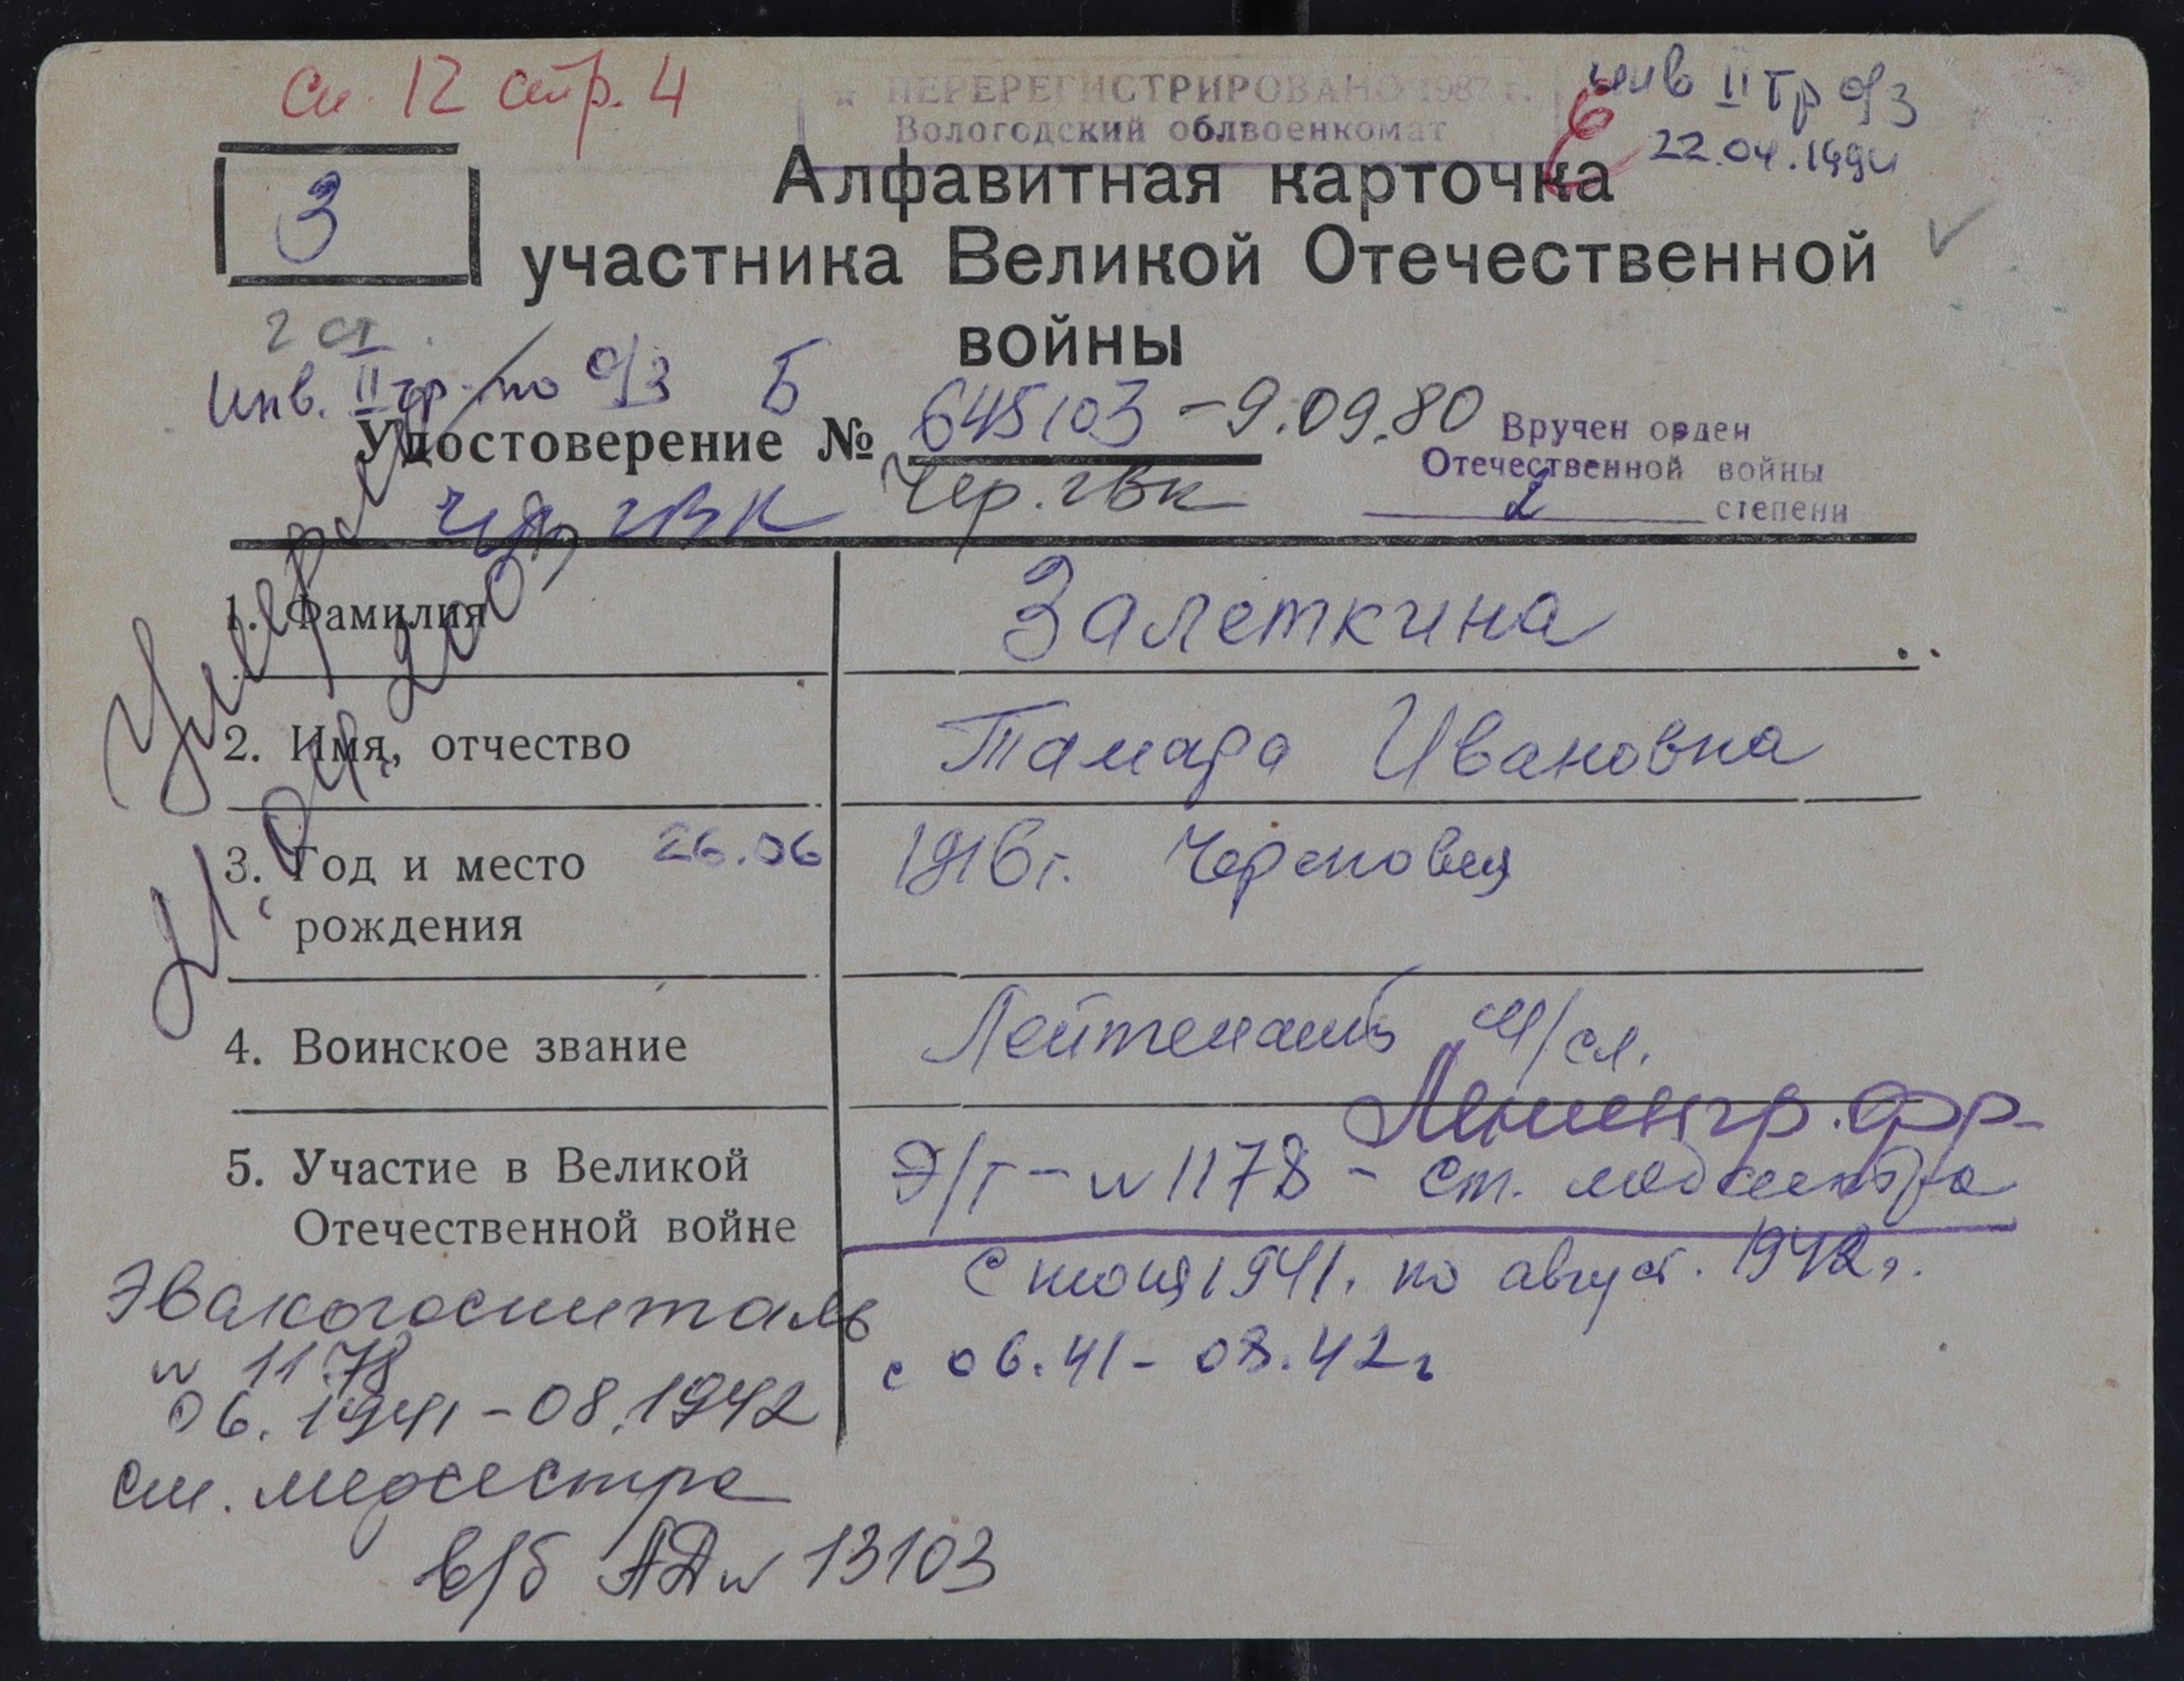 сп. 12 стр. 4
ПЕРЕРЕГИСТРИРОВАНО 1987 г.
Вологодский облвоенкомат
инв II гр о/з
22.04.1994
З
Алфавитная карточка
участника Великой Отечественной
войны
2 ст.
Инв. II гр. по о/з Б
Удостоверение № 645103 - 9.09.80
Чер. ГВК Чер. ГВК
Вручен орден
Отечественной войны
2 степени
Умерла
04. 2001
1. Фамилия Залеткина
2. Имя, отчество Тамара Ивановна
3. Год и место рождения 26.06 1916 г. Череповец
4. Воинское звание Лейтенант м/сл.
Ленингр. фр-
5. Участие в Великой Отечественной войне Э/Г - N 1178 - ст. медсестра
с июня 1941. по август. 1942 г.
с 06.41 - 08.42 г
Эвакогоспиталь
N 1178
06.1941 - 08.1942
ст. медсестра
в/б АД N 13103